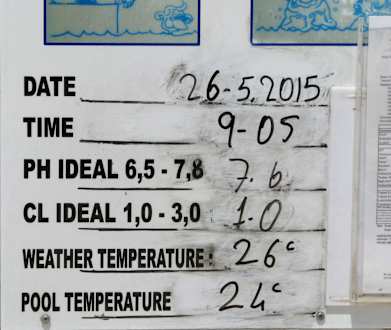 DATE 26-5.2015
TIME 9-05
PH IDEAL 6,5 - 7,8 7.6
CL IDEAL 1,0 - 3,0 : 1.0
WEATHER TEMPERATURE : 26°
POOL TEMPERATURE 24°